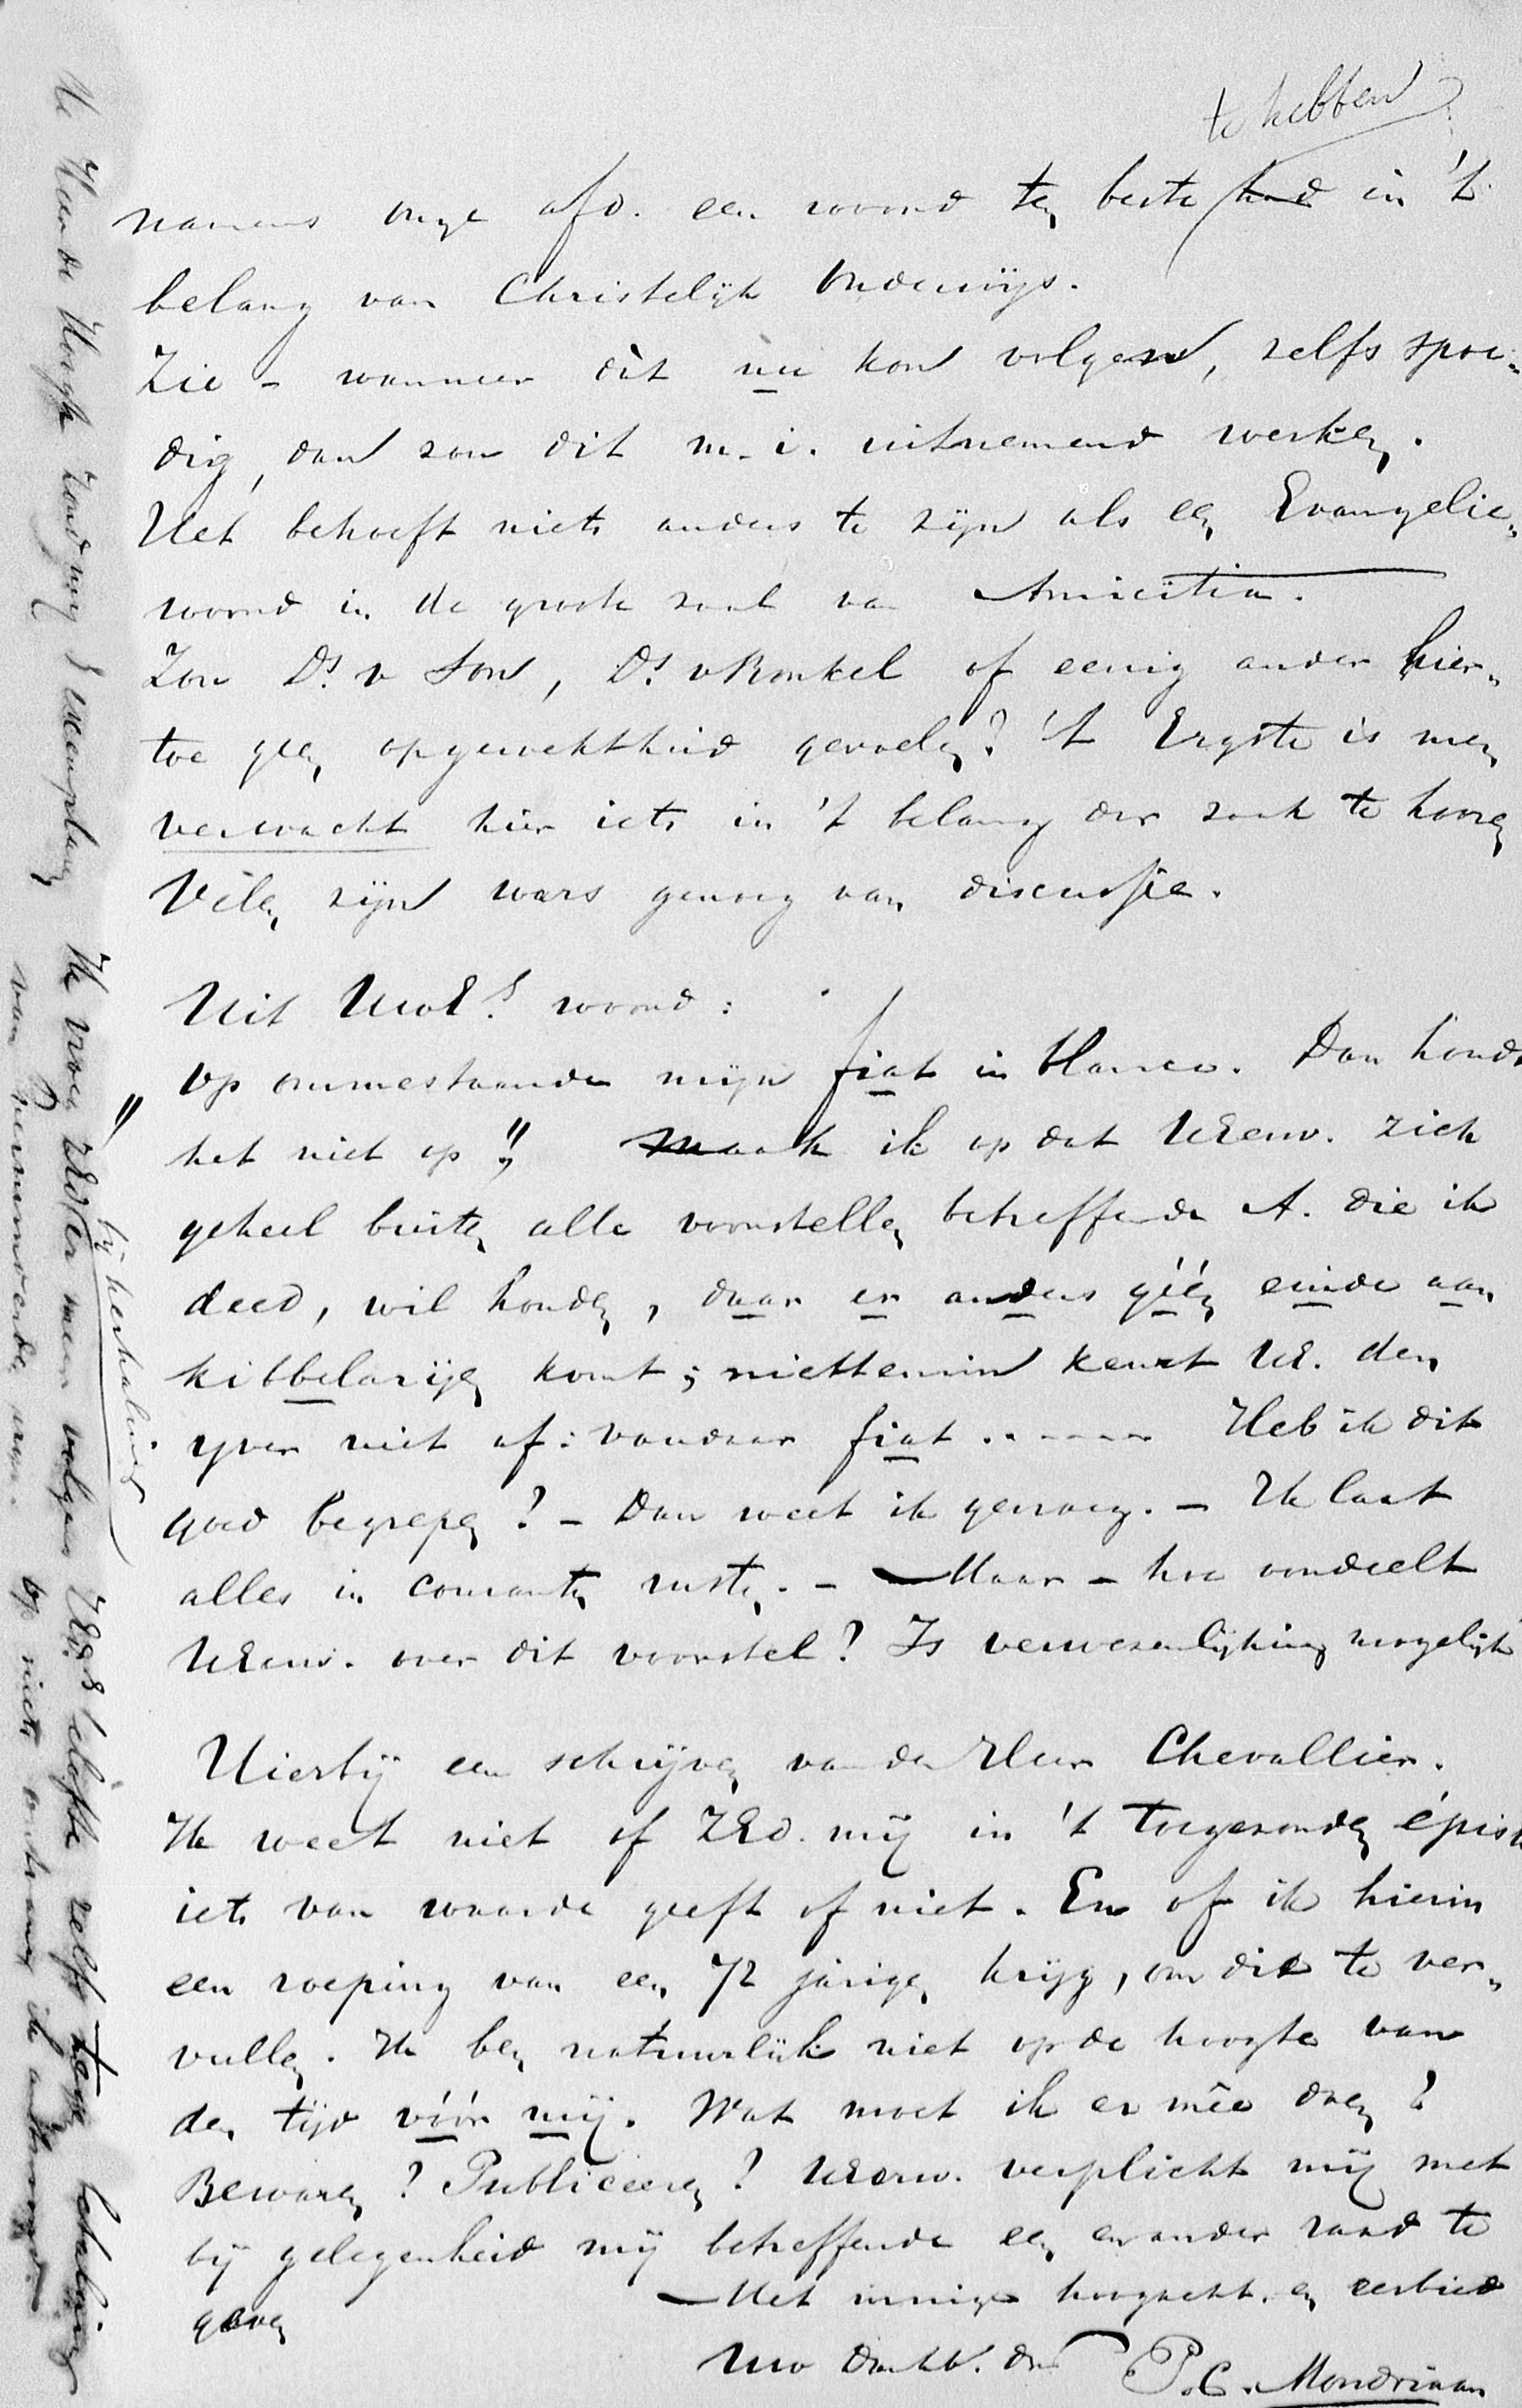 te hebben
namens onze afd. een woord ten beste had in 't
belang van Christelijk Onderwijs.
Zie - wanneer dàt nu kon volgen, zelfs spoe-
dig, dan zou dit m.i. uitnemend werken.
Het behoeft niets anders te zijn als een Evangelie-
woord in de groote zaal van Amicitia.
Zou Ds. v Son, Ds. v Ronkel of eenig ander hier-
toe geen opgewektheid gevoelen? 't Ergste is men
verwacht hier iets in 't belang der zaak te hooren
Velen zijn wars genoeg van discussie.
Uit UwE's woord:
"op ommestaande mijn fiat in blanco. Dan houdt
het niet op", maak ik op dat UEerw. zich
geheel buiten alle voorstellen betreffende A. die ik
deed, wil houden, daar er anders géén einde aan
kibbelarijen komt; niettemin keurt UE. den
yver niet af: vandaar fiat ..---- Heb ik dit
goed begrepen? - Dan weet ik genoeg. - Ik laat
alles in couranten rusten. - Maar - hoe oordeelt
UEerw. over dit voorstel? Is verwezenlijking mogelijk
Hierbij een schrijven van den Heer Chevallier.
Ik weet niet of ZEd. mij in 't toegezonden épist
iets van waarde geeft of niet. En of ik hierin
een roeping van een 72 jarigen krijg, om dit te ver-
vullen. Ik ben natuurlijk niet op de hoogte van
den tijd vóór mij. Wat moet ik er mêe doen?
Bewaren? Publiceeren? UEerw. verplicht mij met
bij gelegenheid mij betreffende een en ander raad te
geven
Met innige hoogacht. en eerbied
Uw dw. dr. P.C. Mondriaan
De Heer de Hoogh zond mij Exemplaren Ik vroeg ZEd. er meer volgens ZEds belofte zelfs tegen betaling
bij herhaling
van genummerde, maar niets ontvang ik antwoord